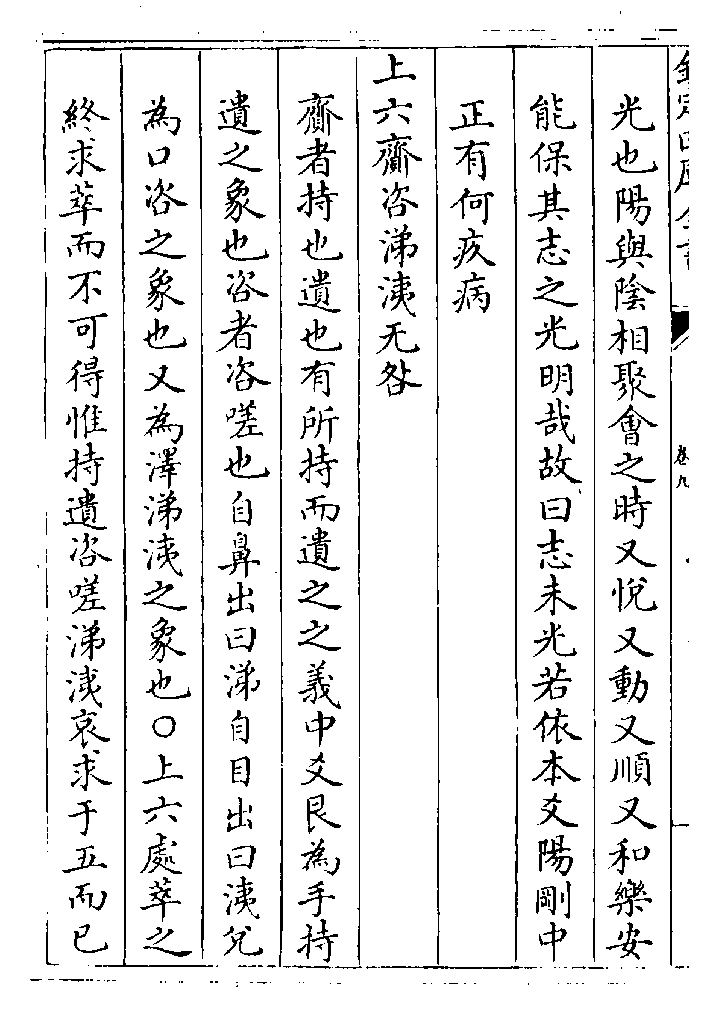 欽定四庫全書
卷九
光也陽與陰相聚會之時又悅又動又順又和樂安
能保其志之光明哉故曰志未光若依本爻陽剛中
正有何疚病
上六齎咨涕洟无咎
齎者持也遺也有所持而遺之之義中爻艮為手持
遺之象也咨者咨嗟也自鼻出曰涕自目出曰洟兌
為口咨之象也又為澤涕洟之象也○上六處萃之
終求萃而不可得惟持遺咨嗟涕洟哀求于五而已